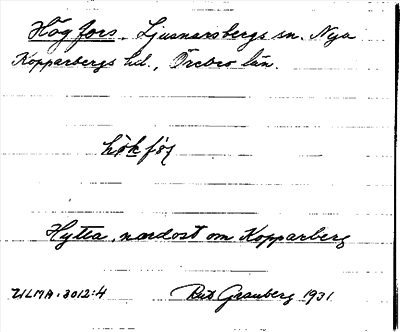 Högfors. Ljusnarsbergs sn. Nya
Kopparbergs hd., Örebro län.
hökfos
Hytta, nordost om Kopparberg
ULMA. 3012:4 Granberg 1931.